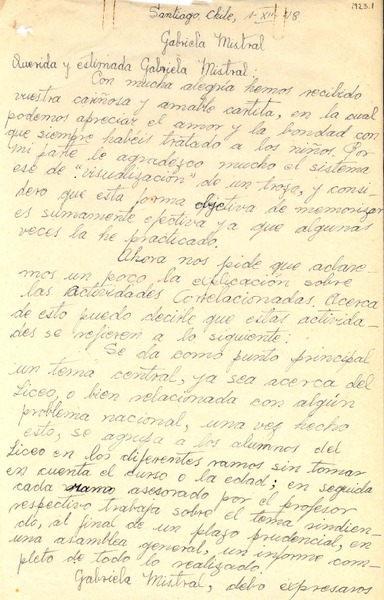 1923.1
Santiago, Chile, 1-XII-48
Gabriela Mistral
Querida y estimada Gabriela Mistral:
Con mucha alegría hemos recibido
vuestra cariñosa y amable cartita, en la cual
podemos apreciar el amor y la bondad con
que siempre habéis tratado a los niños. Por
mi parte le agradesco mucho el sistema
ese de "visualización" de un trozo, y consi-
dero que esta forma objetiva de memorizar
es sumamente efectiva ya que algunas
veces la he practicado.
Ahora nos pide que aclare-
mos un poco la explicación sobre
las Actividades Correlacionadas. Acerca
de esto puedo decirle que estas activida-
des se refieren a lo siguiente:
Se da como punto principal
un tema central, ya sea acerca del
Liceo, o bien relacionada con algún
problema nacional, una vez hecho
esto, se agrupa a los alumnos del
Liceo en los diferentes ramos sin tomar
en cuenta el curso o la edad; en seguida
cada ramo asesorado por el profesor
respectivo trabaja sobre el tema rindien-
do, al final de un plazo prudencial, en
una asamblea general, un informe com-
pleto de todo lo realizado.
Gabriela Mistral, debo expresaros